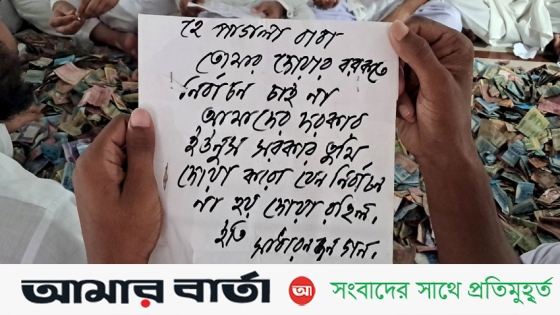 হে পাগলা বাবা
তোমার দোয়ার বরকতে
নির্বাচন চাই না
আমাদের দরকার
ইউনুস সরকার তুমি
দোয়া করো যেন নির্বাচন
না হয় দোয়া রইল.
ইতি
সাধারন জন গন.
আমার বার্তা আ সংবাদের সাথে প্রতিমুহূর্ত